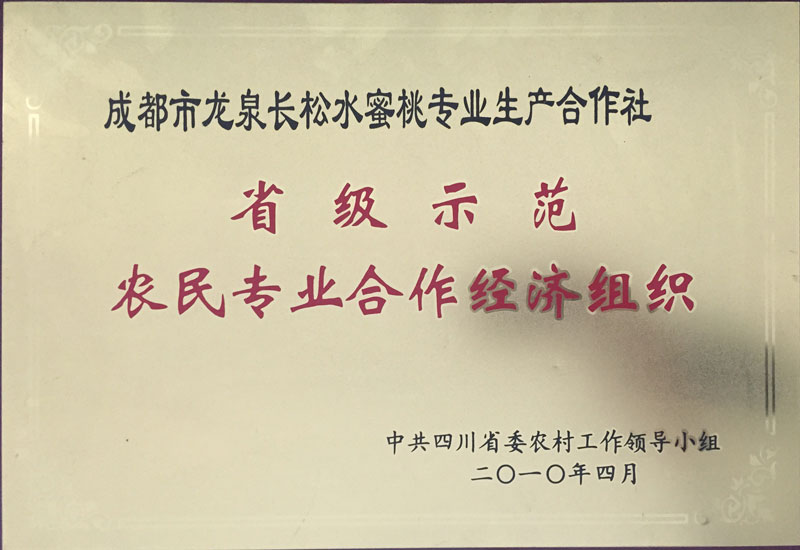 成都市龙泉长松水蜜桃专业生产合作社
省级示范
农民专业合作经济组织
中共四川省委农村工作领导小组
二〇一〇年四月